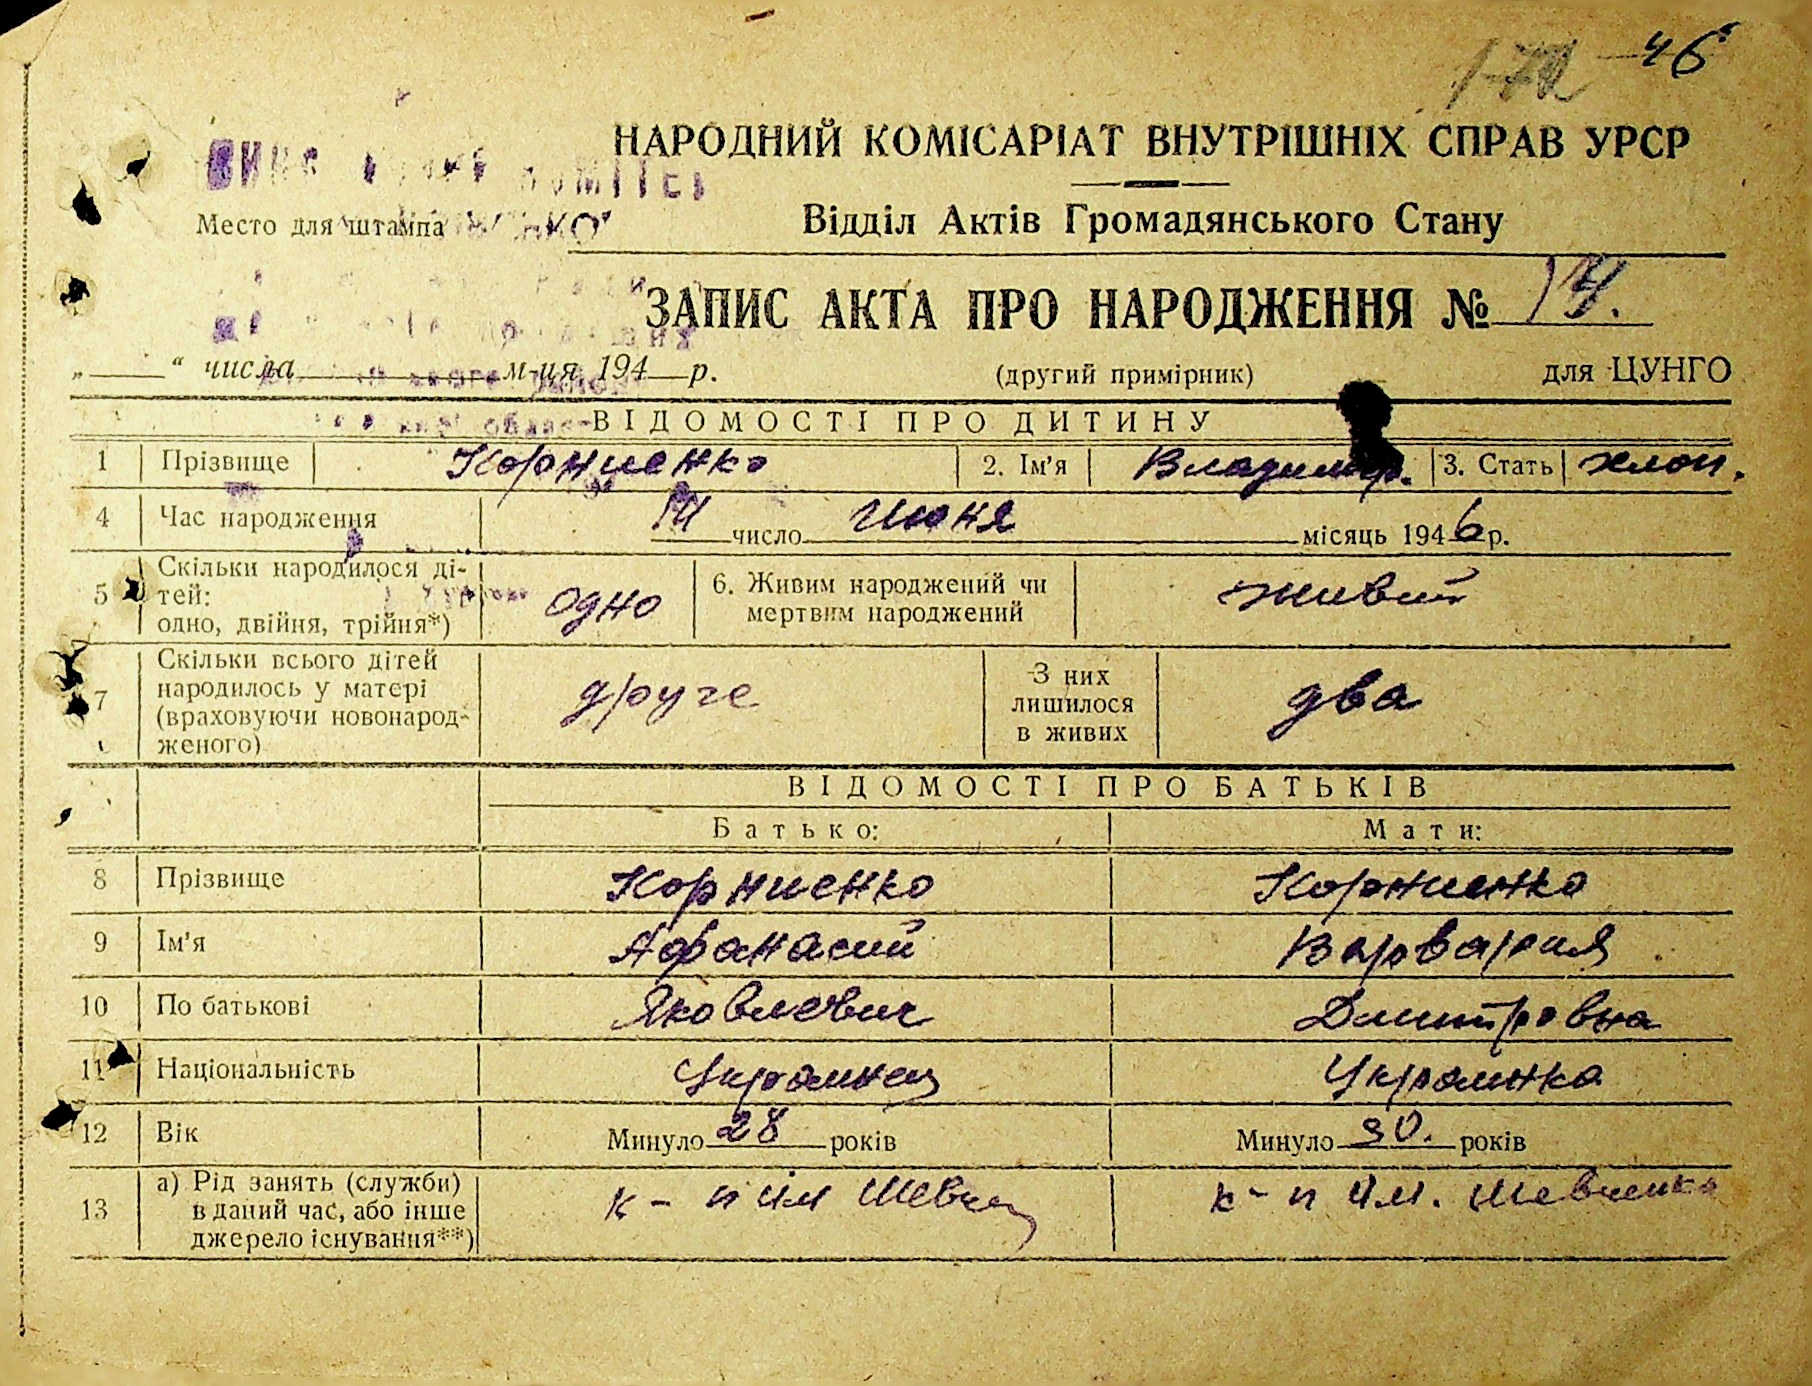 46
НАРОДНИЙ КОМІСАРІАТ ВНУТРІШНІХ СПРАВ УРСР
Место для штампа
Відділ Актів Громадянського Стану
ЗАПИС АКТА ПРО НАРОДЖЕННЯ № 14.
„ “ числа м-ця 194 р. (другий примірник) для ЦУНГО
ВІДОМОСТІ ПРО ДИТИНУ
1 Прізвище Корниенко 2. Ім'я Владимир. 3. Стать хлоп.
4 Час народження 14 число Июня місяць 1946 р.
5 Скільки народилося ді-
тей:
одно, двійня, трійня*) одно 6. Живим народжений чи
мертвим народжений живий
7 Скільки всього дітей
народилось у матері
(враховуючи новонарод-
женого) друге З них
лишилося
в живих два
ВІДОМОСТІ ПРО БАТЬКІВ
Батько: Мати:
8 Прізвище Корниенко Корниенко
9 Ім'я Афанасий Варвария
10 По батькові Яковлевич Дмитровна
11 Національність Украинец Украинка
12 Вік Минуло 28 років Минуло 30. років
13 а) Рід занять (служби)
в даний час, або інше
джерело існування**) к-п им к-п им. Шевченка